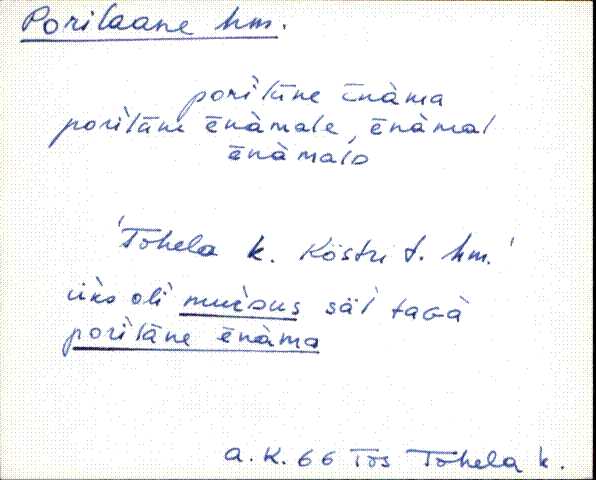 Porilaane hm.
porilāne ēnàma
porilāne ēnàmale, ēnàmal
ēnàmalD
'Tõhela k. Köstri t. hm.'
üks oli muiDus säl taGà
porilāne ēnàma
A. K. 66 Tõs Tõhela k.